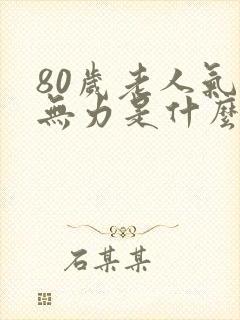 80歲老人氣
無力是什麼
石某某